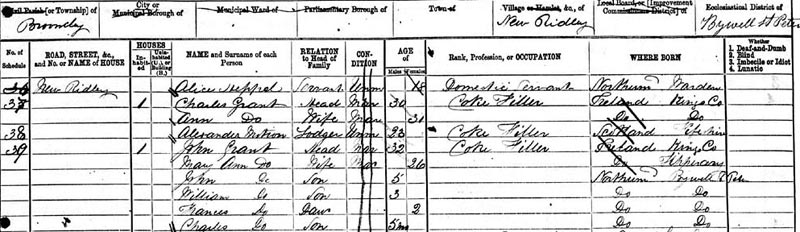 Civil Parish [or Township] of City or Municipal Borough of Municipal Ward of Parliamentary Borough of Town of Village or Hamlet, &c., of Local Board, or [Improvement Commissioners District] of Ecclesiastical District of
Bromley New Ridley Bywell St Peter
No. of Schedule ROAD, STREET, &c., and No. or NAME of HOUSE HOUSES Inhabited Uninhabited (U.), or Building (B.) NAME and Surname of each Person RELATION to Head of Family CONDITION AGE of Males Females Rank, Profession, or OCCUPATION WHERE BORN Whether
1. Deaf-and-Dumb
2. Blind
3. Imbecile or Idiot
4. Lunatic
New Ridley Alice Heppel Servant Unm 18 Domestic Servant Northum Warden
37 1 Charles Grant Head Mar 30 Coke Filler Ireland Kings Co
Ann Do Wife Mar 31 Do Do
38 Alexander Lodger Unm 23 Coke Filler Scotland Fifeshire
39 1 John Grant Head Mar 32 Coke Filler Ireland King Co
Mary Ann Do Wife Mar 26 Do
John Do Son 5 Northum Bywell St Peter
William Do Son 3 Do Do
Frances Do Daur 2 Do Do
Charles Do Son 5mo Do Do